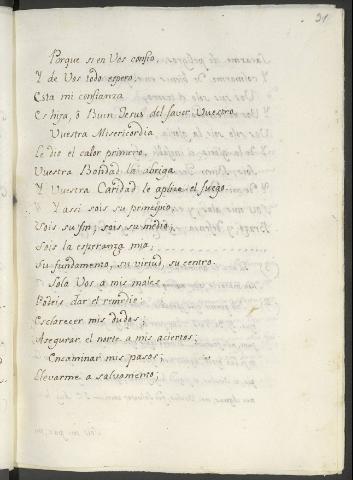 31
Porque si en Vos confio,
Y de Vos todo espero,
Esta mi confianza
Es hija, ò Buen Jesus del favor Vuestro.
Vuestra Misericordia
Le dio el calor primero,
Vuestra Bondad la abriga
Y Vuestra Caridad le aplica el fuego.
Y assi sois su principio,
Sois su fin; sois su medio;
Sois la esperanza mia,
Su fundamento, su virtud, su centro.
Solo Vos a mis males
Podeis dar el remedio:
Esclarecer mis dudas;
Asegurar el norte a mis aciertos;
Encaminar mis pasos;
Llevarme a salvamento;